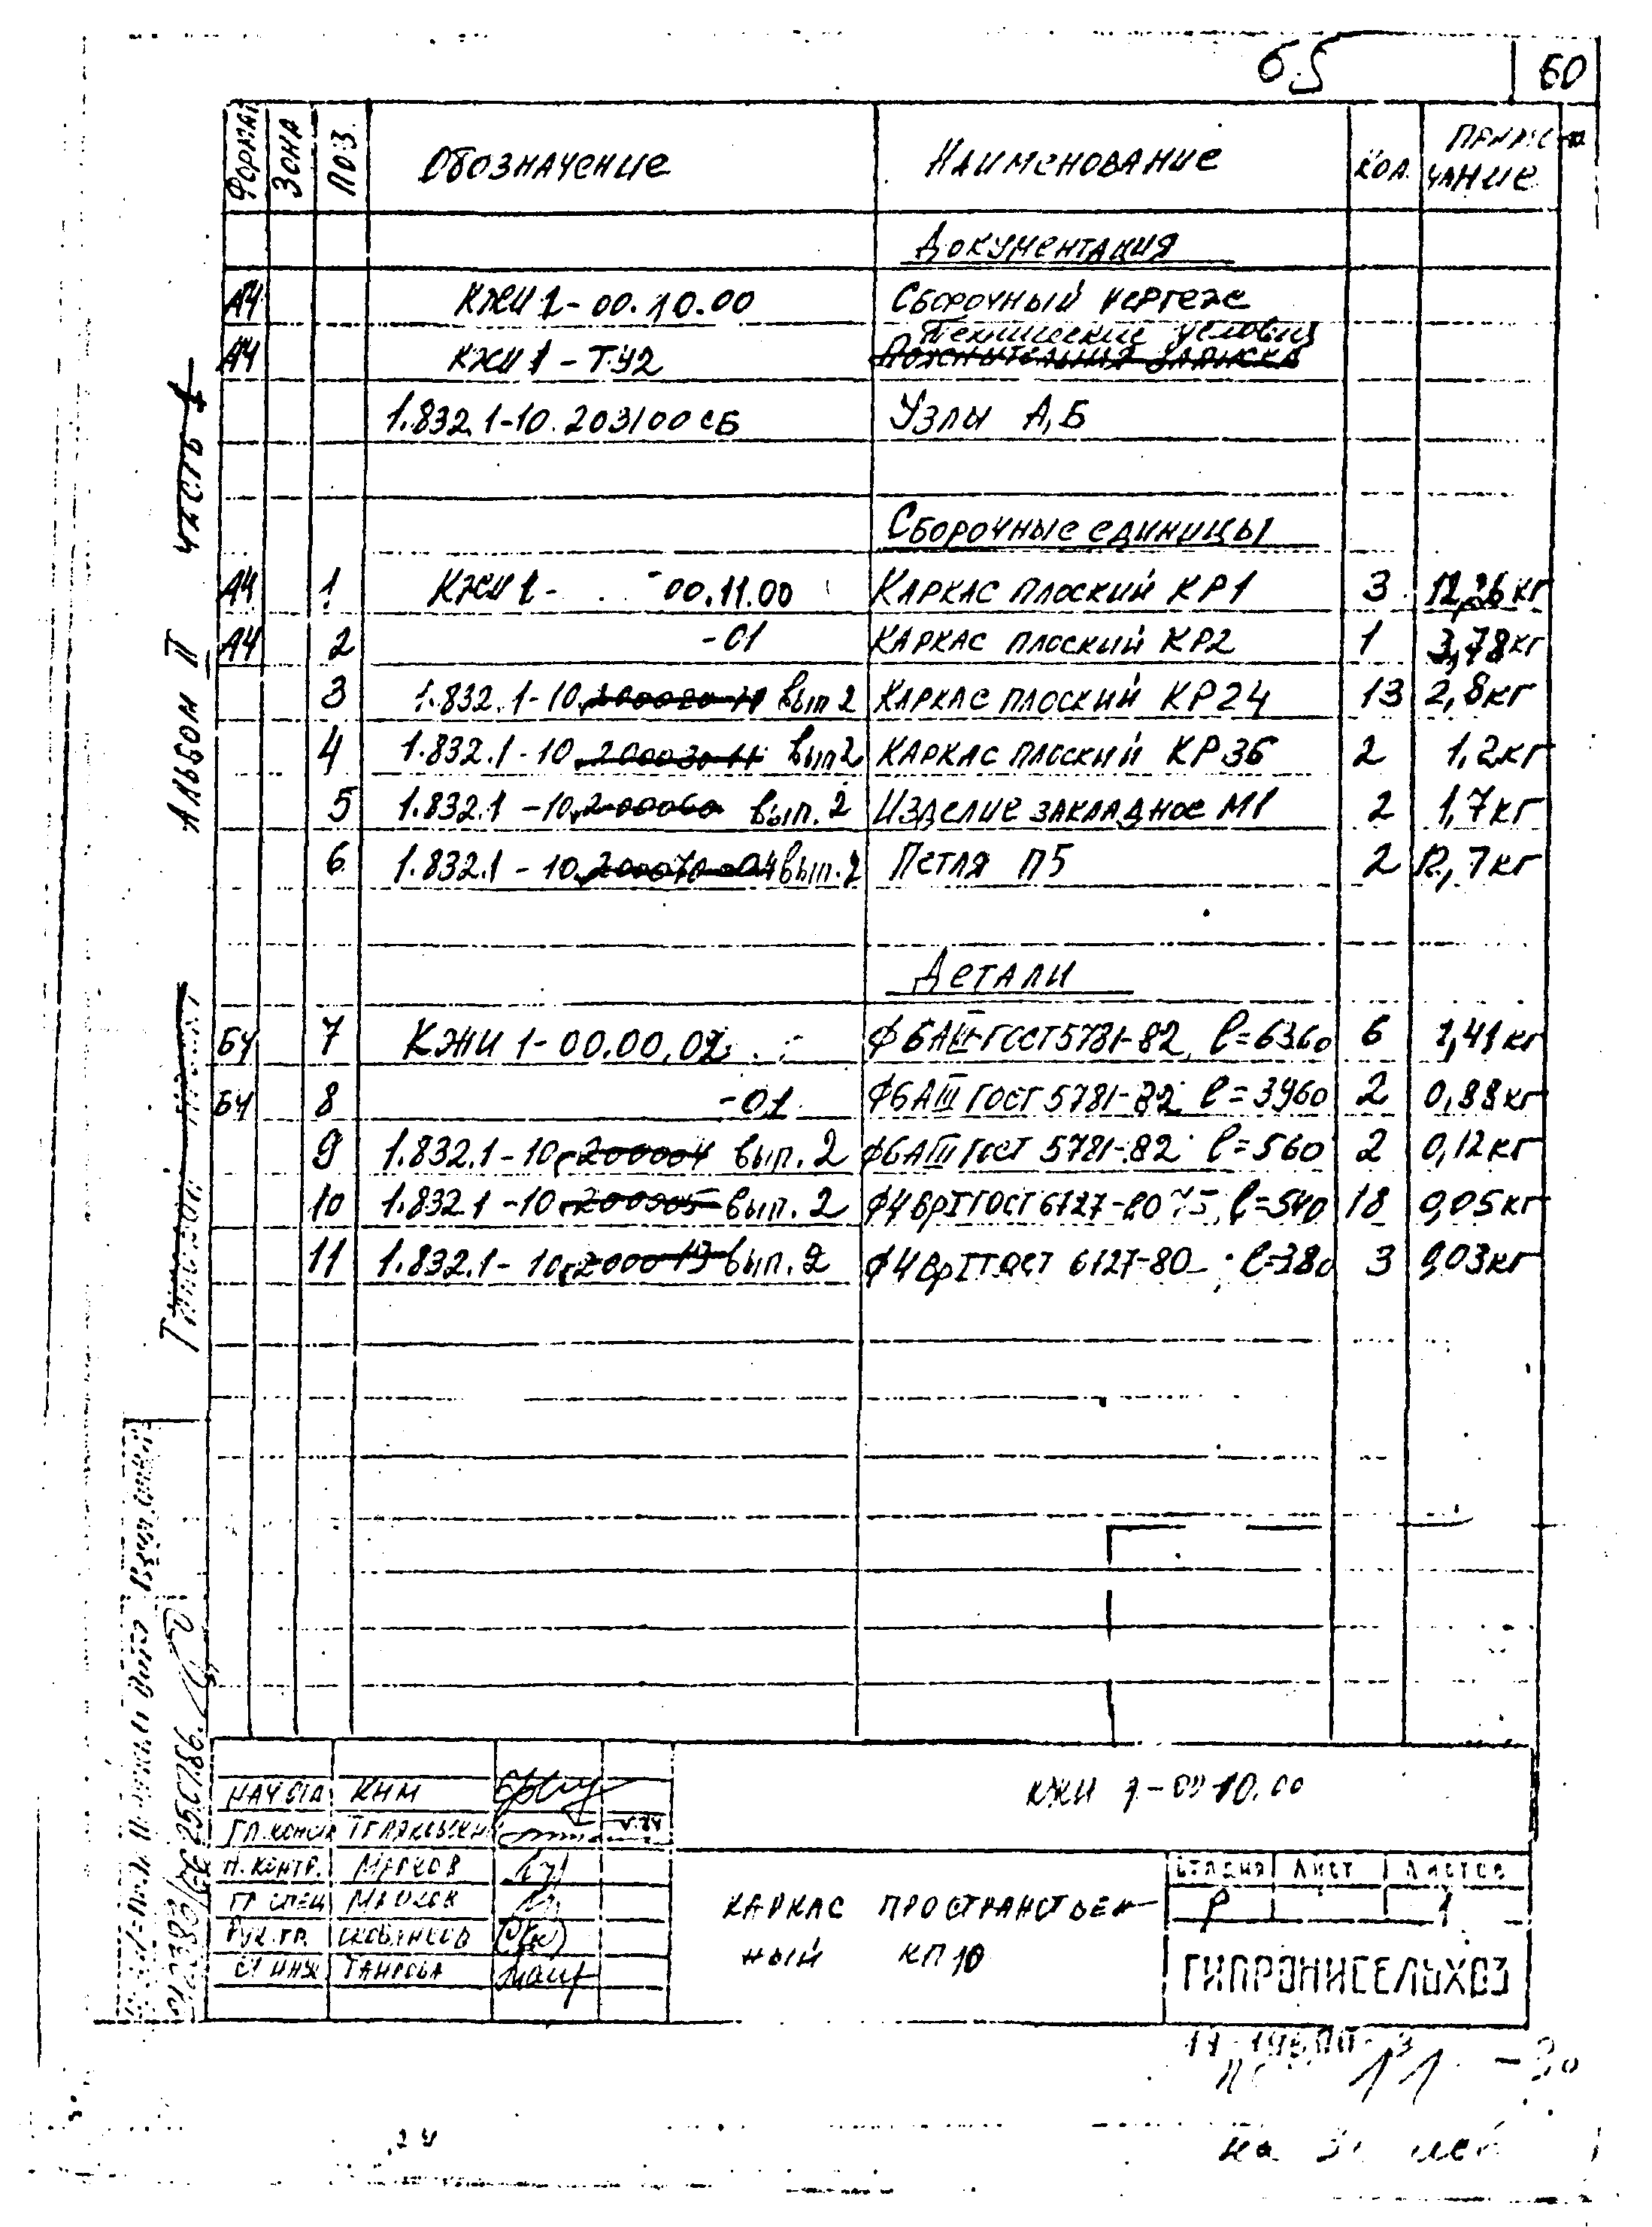 65 60
Формат Зона Поз. Обозначение Наименование Кол. Примечание
Документация
А4 КЖИ 1-00.10.00 Сборочный чертеж
Технические условия
А4 КЖИ 1-ТУ2 Пояснительная записка
1.832.1-10.203100СБ Узлы А,Б
Сборочные единицы
А4 1 КЖИ 1- 00.11.00 Каркас плоский КР1 3 12,26кг
А4 2 -01 Каркас плоский КР2 1 3,78кг
3 1.832.1-10 вып 2 Каркас плоский КР24 13 2,8кг
4 1.832.1-10 вып2 Каркас плоский КР36 2 1,2кг
5 1.832.1-10.200060 вып.2 Изделие закладное М1 2 1,7кг
6 1.832.1-10.200070-04 вып.2 Петля П5 2 ,7кг
Детали
БЧ 7 КЖИ 1-00.00.02 ф6АIII ГОСТ 5781-82 l=6360 6 1,41кг
БЧ 8 -01 ф6АIII ГОСТ 5781-82 l=3960 2 0,88кг
9 1.832.1-10.200004 вып.2 ф6АIII ГОСТ 5781-82 l=560 2 0,12кг
10 1.832.1-10.200005 вып.2 ф4ВрI ГОСТ 6727-80 l=540 18 0,05кг
11 1.832.1-10 вып.2 ф4ВрI ГОСТ 6727-80 l=380 3 0,03кг
Альбом II часть 1
25.07.86.
КЖИ 1-00 10.00
Нач отд Ким
Гл.констр
Н.контр. Марков
Гл спец Марков
Рук.гр.
Ст инж Таирова
Каркас пространствен
ный КП10
Стадия Лист Листов
Р 1
ГИПРОНИСЕЛЬХОЗ
11 -30
на